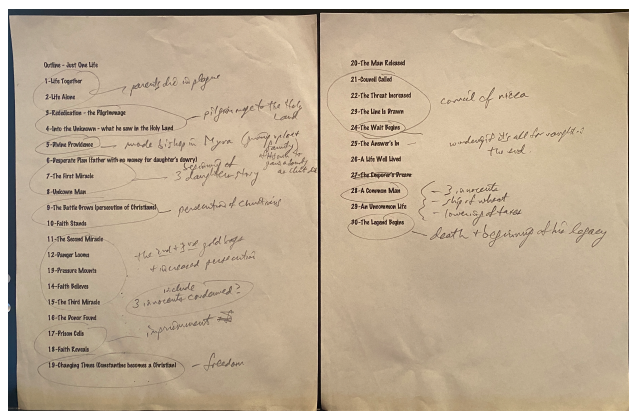 Outline - Just One Life
1-Life Together
2-Life Alone
parents die in plague
3-Rededication - the Pilgrimmage
pilgrimage to the Holy
Land
4-Into the Unknown - what he saw in the Holy Land
5-Divine Providence
made bishop in Myra
6-Desperate Plan (father with no money for daughter's dowry)
7-The First Miracle
beginning of
3 daughters story
8-Unkown Man
9-The Battle Grows (persecution of Christians)
persecution of Christians
10-Faith Stands
11-The Second Miracle
12-Danger Looms
the 2nd + 3rd gold bags
+ increased persecution
13-Pressure Mounts
14-Faith Believes
include
3 innocents condemned?
15-The Third Miracle
16-The Donor Found
17-Prison Cells
imprisonment
18-Faith Reveals
19-Changing Times (Constantine becomes a Christian)
- freedom
20-The Man Released
21-Council Called
22-The Threat Increased
council of nicea
23-The Line Is Drawn
24-The Wait Begins
25-The Answer's In
wondering if it's all for naught in
the end.
26-A Life Well Lived
27-The Emperor's Dream
28-A Common Man
- 3 innocents
- ship of wheat
- lowering of taxes
29-An Uncommon Life
30-The Legend Begins
death + beginning of his legacy